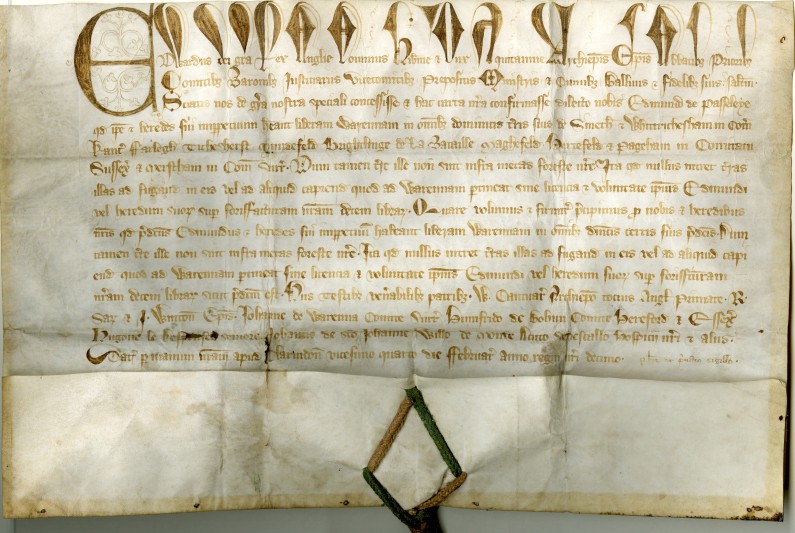 Edwardus dei gra Rex Anglie Dominus Hibnie & Dux Aquitannie Archiepis Epis Abbatib Priorib
Comitib Baronib Justiciariis Vicecomitib Prepositis Ministris & Omnib Ballivis & fidelib suis saltm
Sciatis nos de gra nostra speciali concessisse & hac carta nra confirmasse dilecto nobis Edmundo de Passeleye
qd ipe & heredes sui imppetuum heant liberam Warennam in omib dominicis tris suis de Smeth & in Com
Kanc de la Bataille Maghefeld & Pageham in Comitatu
Sussex & Mersham in Com Surr Dum tamen tre ille non sint infra metas foreste nre Ita qd nullus intret tras
illas ad fugand in eis vel ad aliquid capiend quod ad Warennam ptineat sine licencia & voluntate ipius Edmundi
vel heredum suor sup forisfcuram nram decem librar Quare volumus & firmit precipimus p nobis & heredibus
nris qd pdcus Edmundus & heredes sui imppetuum habeant liberam Warennam in omib dnicis terris suis pdcis Dum
tamen tre ille non sint infra metas foreste nre Ita qd nullus intret tras illas ad fugand in eis vel ad aliquid capi
end quod ad Warennam ptineat sine licencia & voluntate ipius Edmundi vel heredum suor sup forisfcuram
nram decem librar sicut pdcm est Hiis testib venabilib patrib W Cantuar Archiepo tocius Angl Primate R
Sar & J Wynton Epis Johanne de Warenna Comite Surr Humfrido de Bohun Comite Hereford & Essex
Hugone le Despenser Johanne de sco Johanne Willo de Monte Acuto senescallo hospicii nri & aliis
Dat p manum nram apud vicesimo quarto die Februar anno regni nri decimo